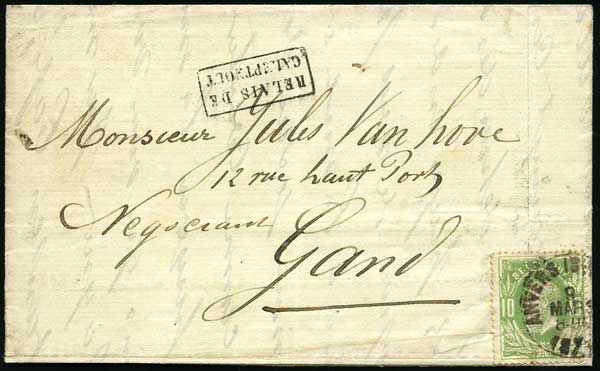 RELAIS DE
CALMPTHOUT
Monsieur Jules Van hove
12 rue haut Port
Negociant
Gand
10
ANVERS
8
MAR
187